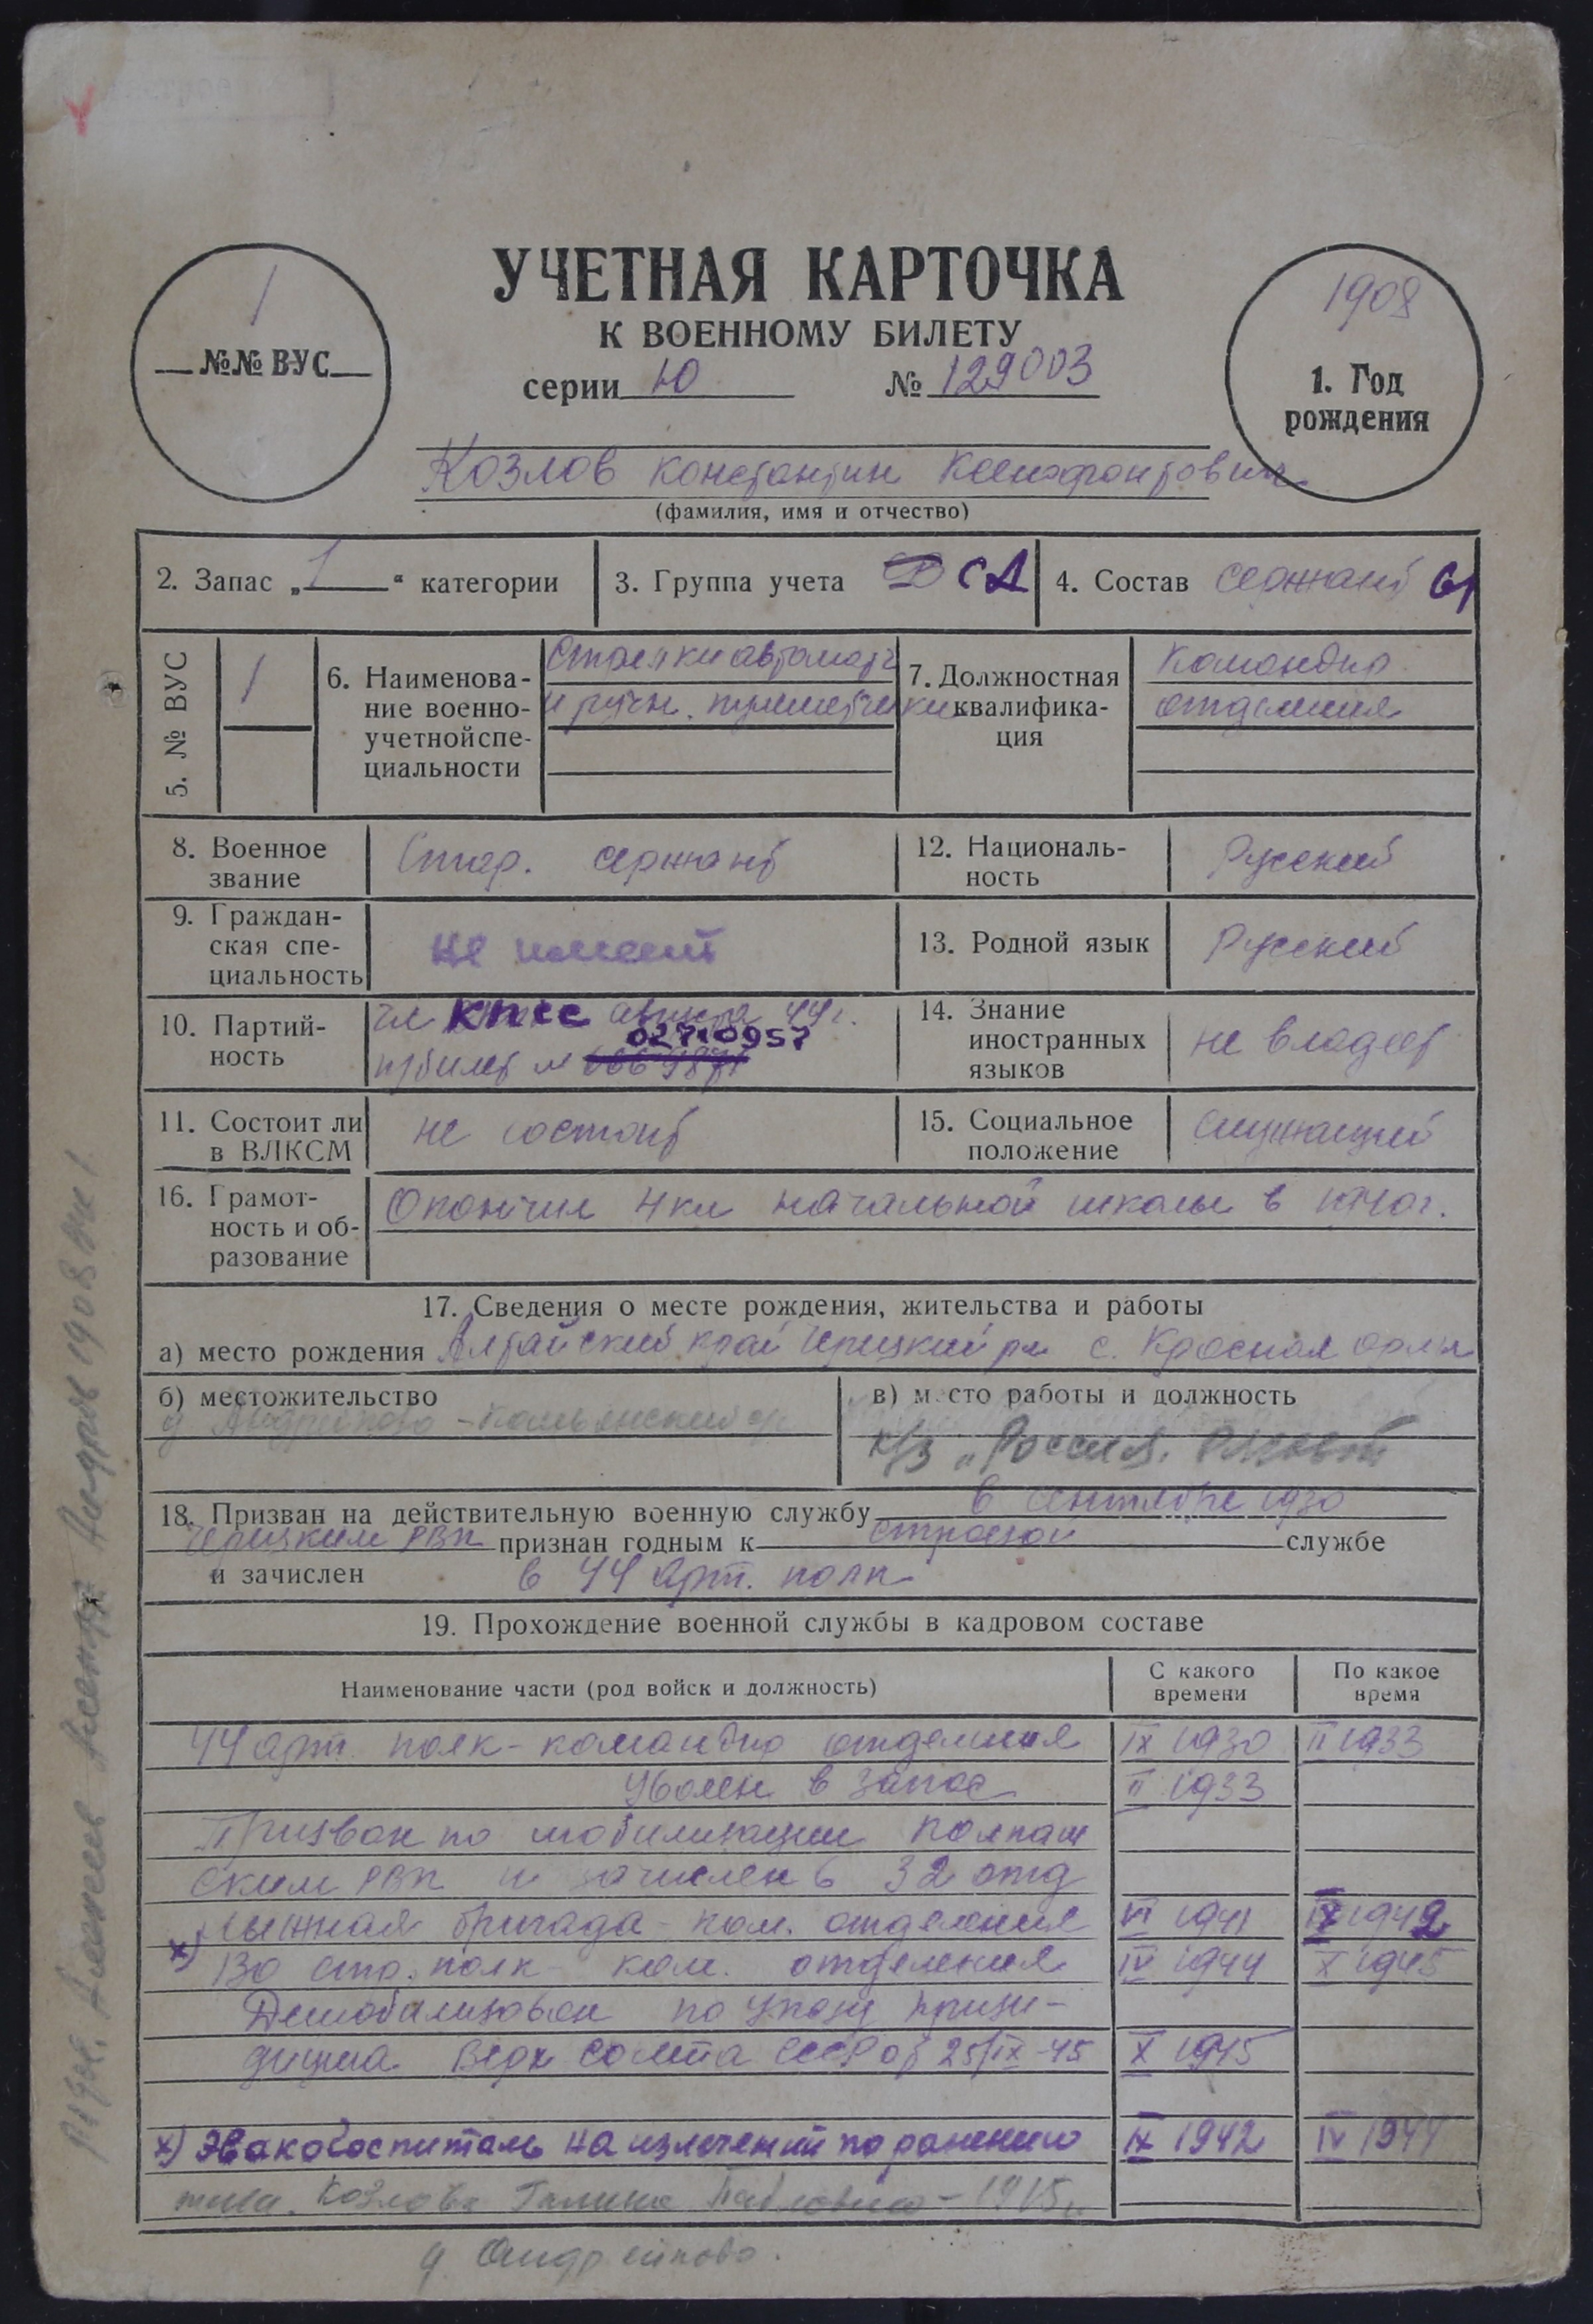 УЧЕТНАЯ КАРТОЧКА
К ВОЕННОМУ БИЛЕТУ
серии Ю № 129003
1
№№ ВУС
1908
1. Год
рождения
Козлов Константин Ксенофонтович
(фамилия, имя и отчество)
2. Запас „1“ категории
3. Группа учета СА
4. Состав сержант
5. № ВУС
1
6. Наименова-
ние военно-
учетнойспе-
циальности
Стрелки автоматч
и ручн. пулеметчики
7. Должностная
квалифика-
ция
Командир
отделения
8. Военное
звание
Стар. сержант
12. Националь-
ность
Русский
9. Граждан-
ская спе-
циальность
не имеет
13. Родной язык
Русский
10. Партий-
ность
чл КПСС августа 44 г.
02710957
п/билет №
14. Знание
иностранных
языков
не владеет
11. Состоит ли
в ВЛКСМ
не состоит
15. Социальное
положение
служащий
16. Грамот-
ность и об-
разование
Окончил 4 кл начальной школы в
17. Сведения о месте рождения, жительства и работы
а) место рождения Алтайский край с. Красная
б) местожительство
в) место работы и должность
к/з „Россия"
18. Призван на действительную военную службу в сентябре 1930
РВК признан годным к строевой службе
и зачислен в 44 арт. полк
19. Прохождение военной службы в кадровом составе
Наименование части (род войск и должность)
С какого
времени
По какое
время
44 арт. полк - командир отделения IX 1930 II 1933
Уволен в запас II 1933
Призван по мобилизации
ским РВК и зачислен в 32 отд
лыжная бригада - ком. отделения VI 1941 IX 1942
х) 130 стр. полк - ком. отделения IV 1944 X 1945
Демобилизован по указу прези-
диума Верх Совета СССР от 25/IX-45 X 1945
х) Эвакогоспиталь на излечении по ранению IX 1942 IV 1944
жена. Козлова Галина Павловна - 1915г.
д.